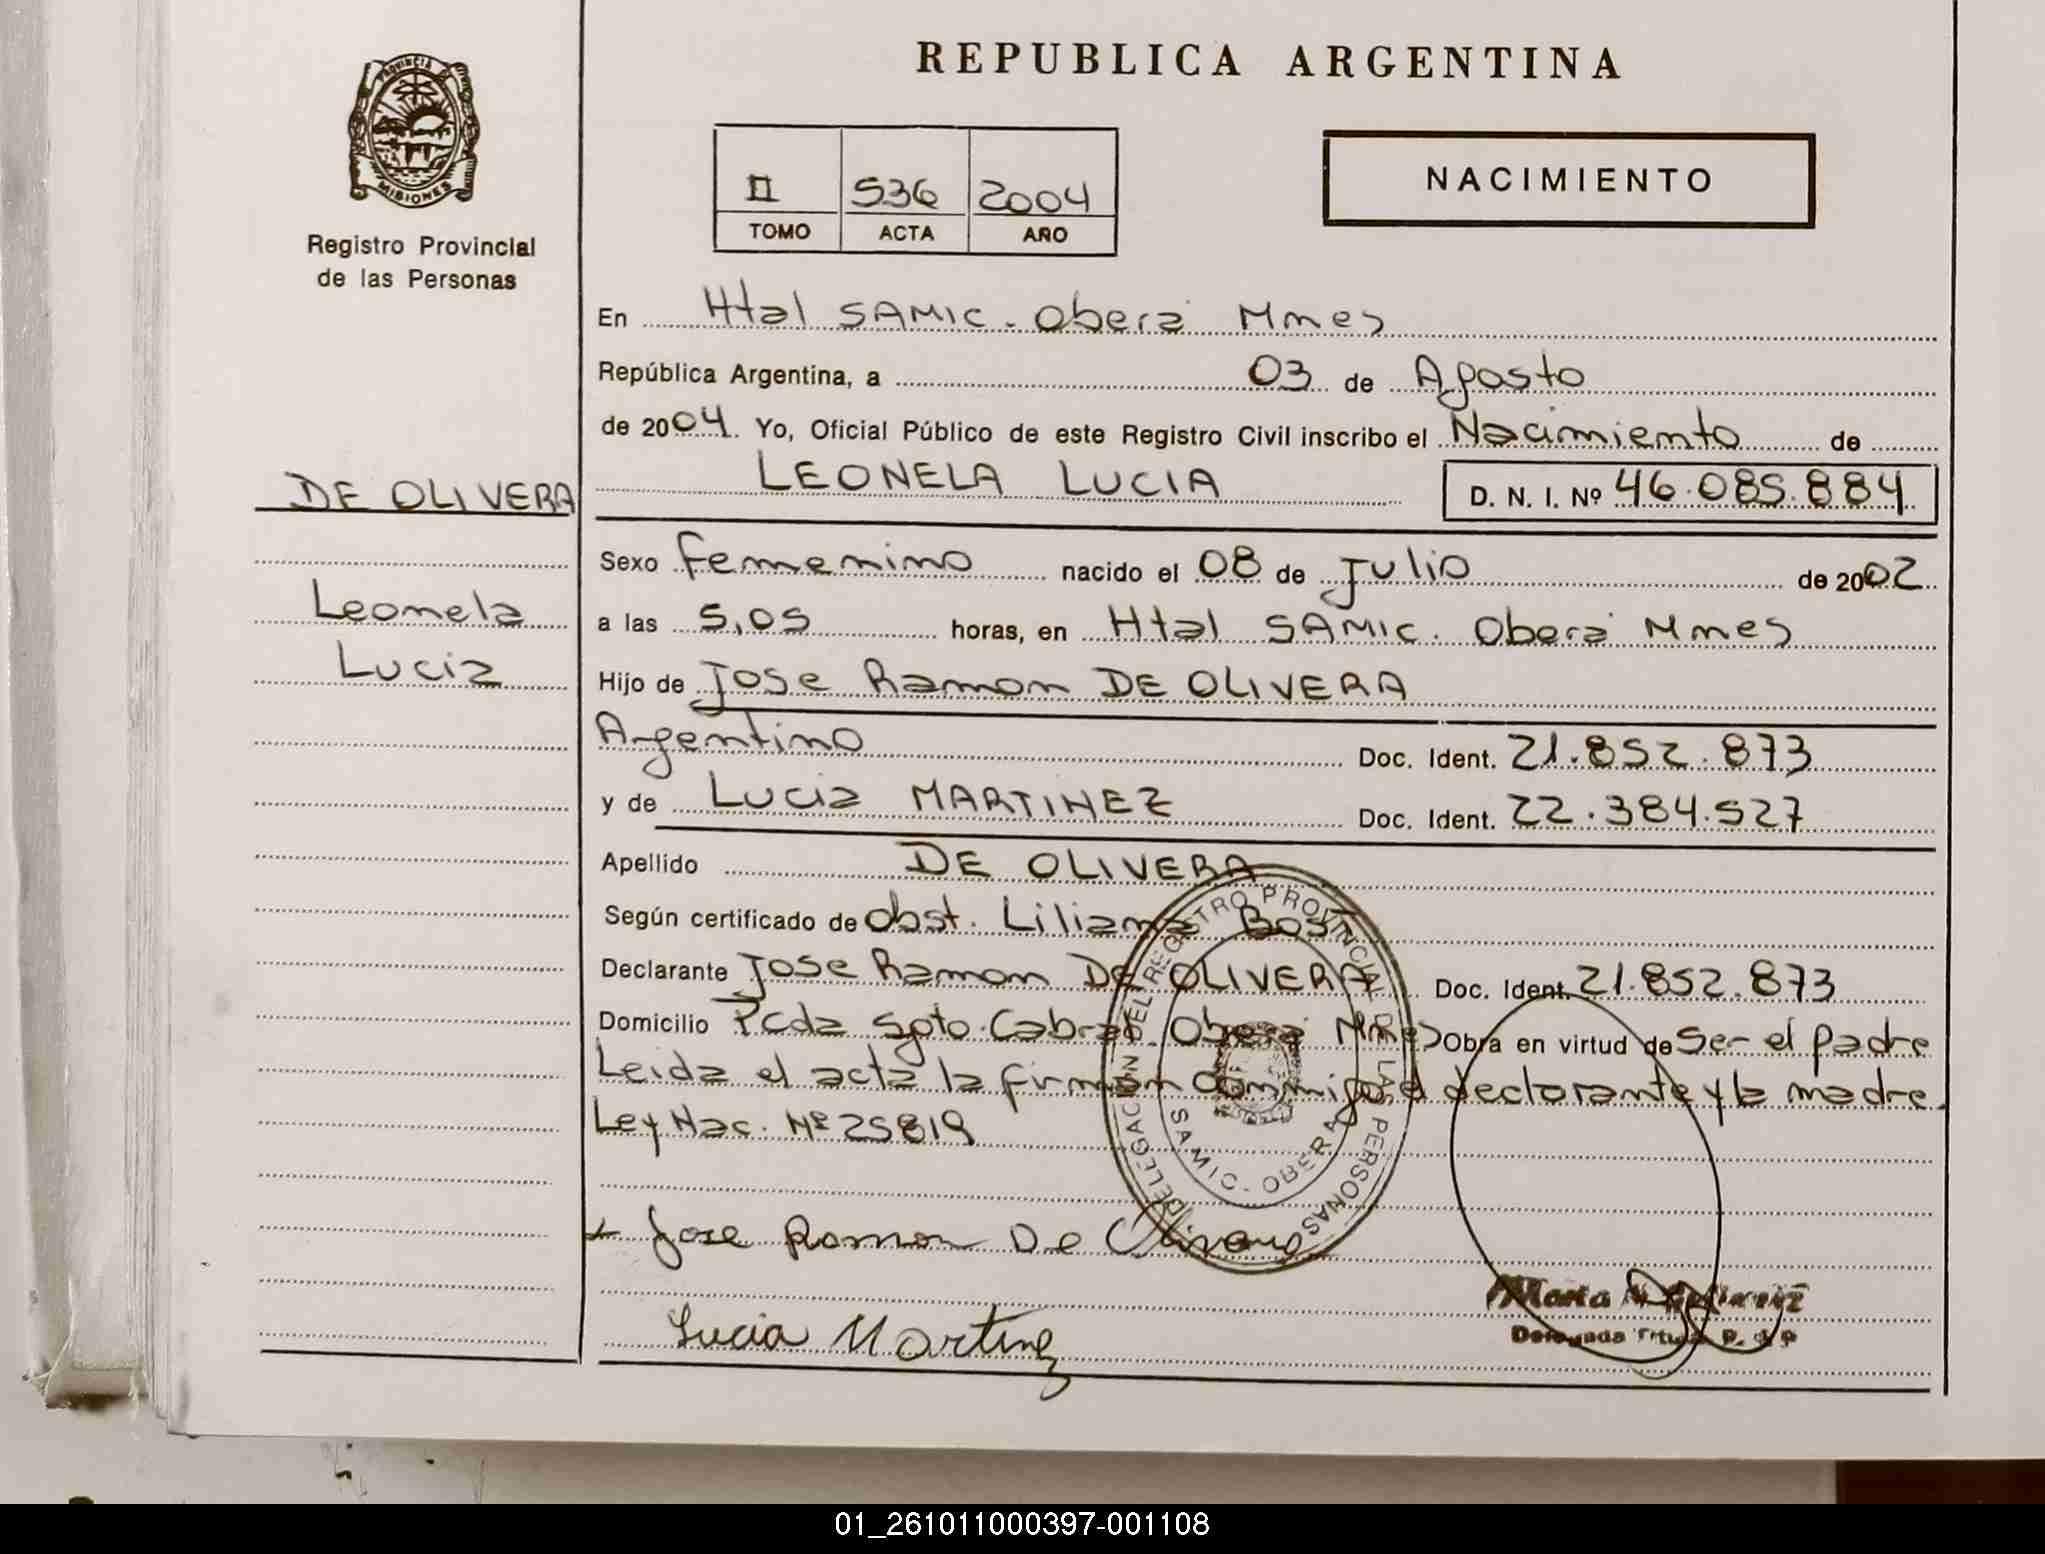 REPUBLICA ARGENTINA
PROVINCIA DE
MISIONES
Registro Provincial
de las Personas
II 536 2004
TOMO ACTA AÑO
NACIMIENTO
En Htal SAMIC. Oberá Mnes
República Argentina, a 03 de Agosto
de 2004. Yo, Oficial Público de este Registro Civil inscribo el Nacimiento de
DE OLIVERA
LEONELA LUCIA D. N. I. Nº 46.085.884
Leonela
Lucia
Sexo femenino nacido el 08 de Julio de 2002
a las 5,05 horas, en Htal SAMIC. Oberá Mnes
Hijo de Jose Ramon DE OLIVERA
Argentino Doc. Ident. 21.852.873
y de Lucia MARTINEZ Doc. Ident. 22.384.527
Apellido DE OLIVERA
Según certificado de obst. Liliana Bost
Declarante Jose Ramon DE OLIVERA Doc. Ident. 21.852.873
Domicilio Pcda Sgto. Cabral. Oberá Mnes Obra en virtud de ser el padre
Leida el acta la firman conmigo el declarante y la madre.
Ley Nac. Nº 25819
DELEGACION DEL REGISTRO PROVINCIAL DE LAS PERSONAS
SAMIC - OBERA
Jose Ramon De Olivera
Lucia Martinez
Delegada Titular R. P. P
01_261011000397-001108